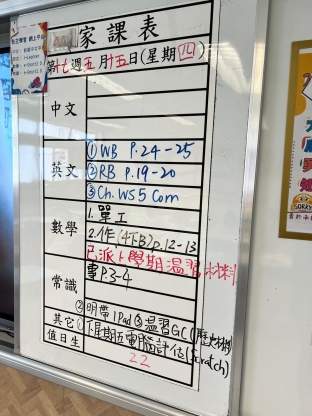 家課表
第十七週五月十五日(星期四)
中文
英文
① WB P.24-25
② RB P.19-20
③ Ch. WS5 Com
數學
1. 單工
2. 作(4下B)p.12-13
已派上學期温習材料
常識
雪P.3-4
其它
② 明帶iPad ③ 温習GC(歷史材料)
① 下星期五電腦評估(Scratch)
值日生
22
SORRY